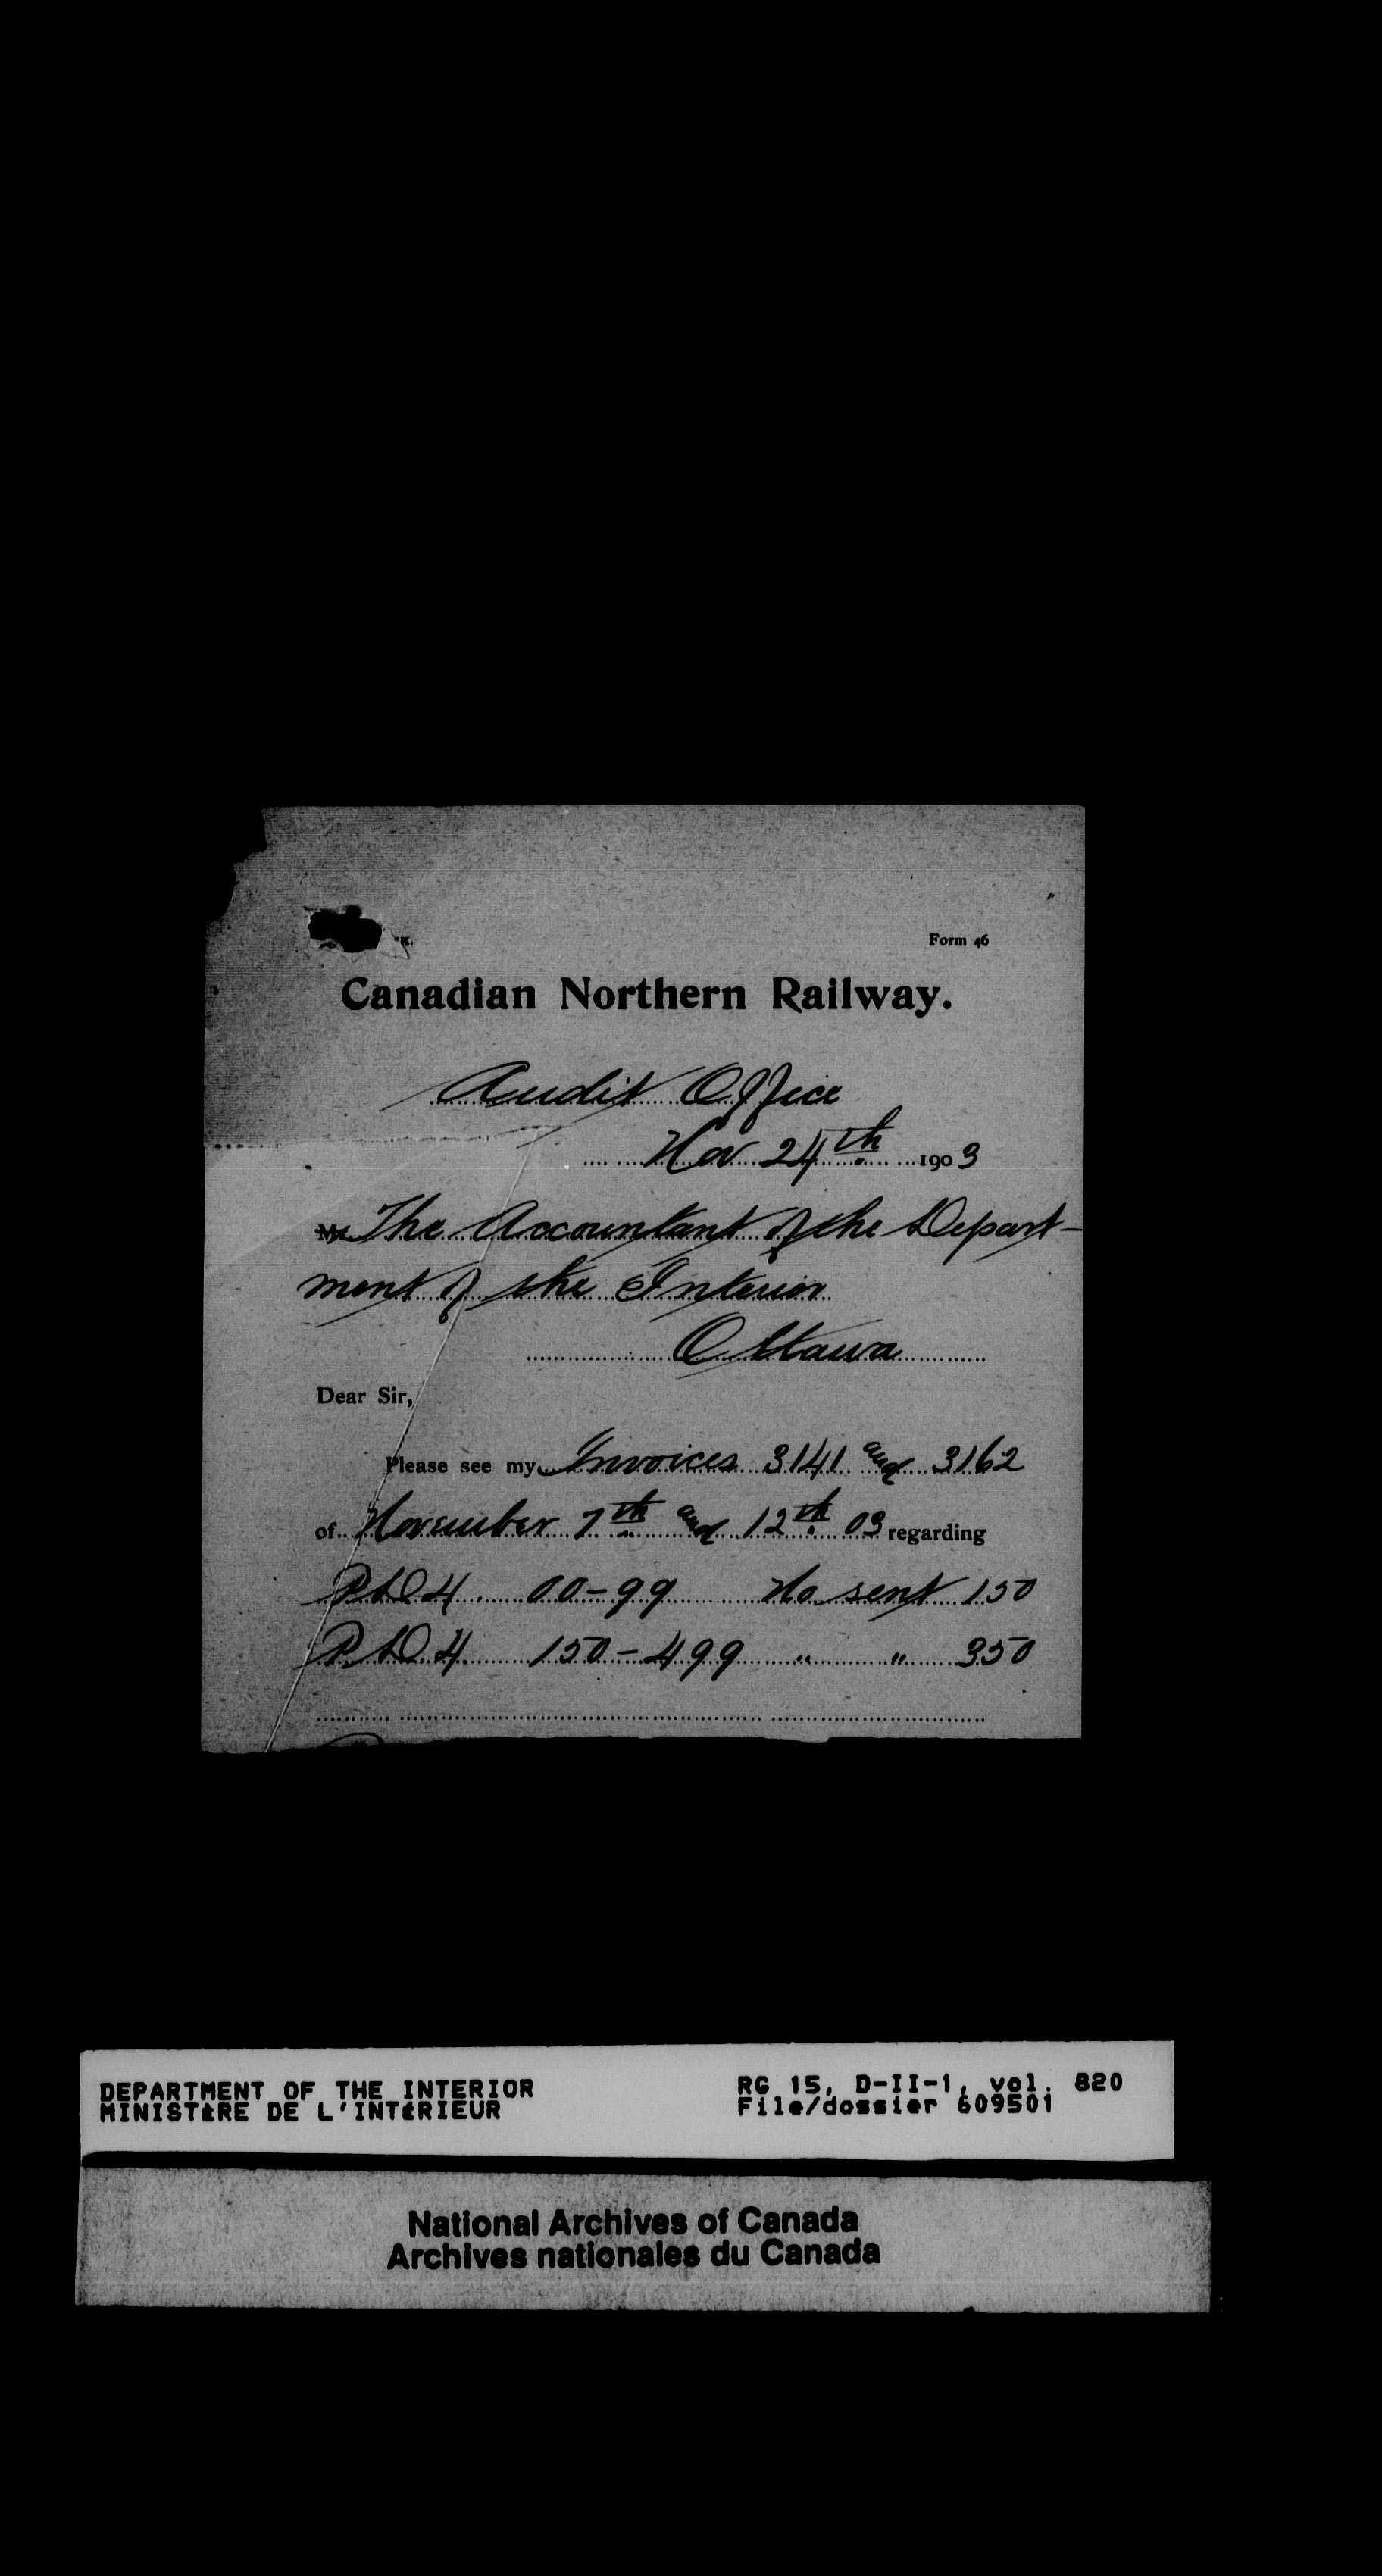 Form 46
Canadian Northern Railway.
Audit Office
Nov 24th 1903
Mr. The Accountant of the Depart-
ment of the Interior
Ottawa
Dear Sir,
Please see my Invoices 3141 and 3162
of November 7th and 12th 03 regarding
00-99 No sent 150
150-499 " " 350
DEPARTMENT OF THE INTERIOR RG 15, D-II-1, vol. 820
MINISTÈRE DE L'INTÉRIEUR File/dossier 609501
National Archives of Canada
Archives nationales du Canada